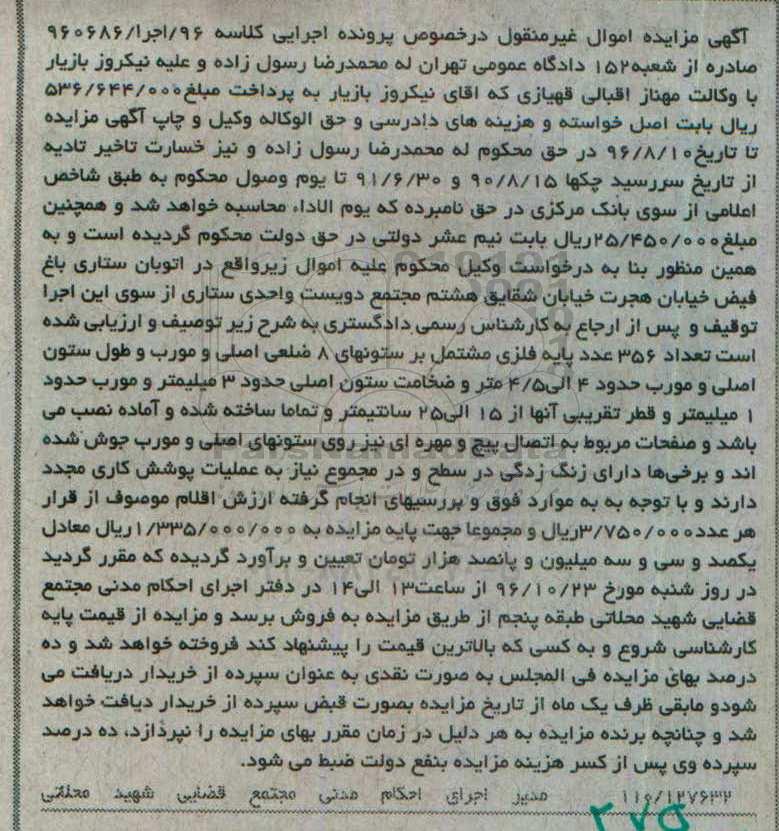 آگهی مزایده اموال غیرمنقول درخصوص پرونده اجرایی کلاسه ۹۶/اجرا/۹۶۰۶۸۶
صادره از شعبه۱۵۲ دادگاه عمومی تهران له محمدرضا رسول زاده و علیه نیکروز بازیار
با وکالت مهناز اقبالی قهیازی که اقای نیکروز بازیار به پرداخت مبلغ۵۳۶/۶۴۴/۰۰۰
ریال بابت اصل خواسته و هزینه های دادرسی و حق الوکاله وکیل و چاپ آگهی مزایده
تا تاریخ۹۶/۸/۱۰ در حق محکوم له محمدرضا رسول زاده و نیز خسارت تاخیر تادیه
از تاریخ سررسید چکها ۹۰/۸/۱۵ و ۹۱/۶/۳۰ تا یوم وصول محکوم به طبق شاخص
اعلامی از سوی بانک مرکزی در حق نامبرده که یوم الاداء محاسبه خواهد شد و همچنین
مبلغ۲۵/۴۵۰/۰۰۰ریال بابت نیم عشر دولتی در حق دولت محکوم گردیده است و به
همین منظور بنا به درخواست وکیل محکوم علیه اموال زیرواقع در اتوبان ستاری باغ
فیض خیابان هجرت خیابان شقایق هشتم مجتمع دویست واحدی ستاری از سوی این اجرا
توقیف و پس از ارجاع به کارشناس رسمی دادگستری به شرح زیر توصیف و ارزیابی شده
است تعداد ۳۵۶ عدد پایه فلزی مشتمل بر ستونهای ۸ ضلعی اصلی و مورب و طول ستون
اصلی و مورب حدود ۴ الی۴/۵ متر و ضخامت ستون اصلی حدود ۳ میلیمتر و مورب حدود
۱ میلیمتر و قطر تقریبی آنها از ۱۵ الی۲۵ سانتیمتر و تماما ساخته شده و آماده نصب می
باشد و صفحات مربوط به اتصال پیچ و مهره ای نیز روی ستونهای اصلی و مورب جوش شده
اند و برخی‌ها دارای زنگ زدگی در سطح و در مجموع نیاز به عملیات پوشش کاری مجدد
دارند و با توجه به به موارد فوق و بررسیهای انجام گرفته ارزش اقلام موصوف از قرار
هر عدد۳/۷۵۰/۰۰۰ریال و مجموعا جهت پایه مزایده به ۱/۳۳۵/۰۰۰/۰۰۰ریال معادل
یکصد و سی و سه میلیون و پانصد هزار تومان تعیین و برآورد گردیده که مقرر گردید
در روز شنبه مورخ ۹۶/۱۰/۲۳ از ساعت۱۳ الی۱۴ در دفتر اجرای احکام مدنی مجتمع
قضایی شهید محلاتی طبقه پنجم از طریق مزایده به فروش برسد و مزایده از قیمت پایه
کارشناسی شروع و به کسی که بالاترین قیمت را پیشنهاد کند فروخته خواهد شد و ده
درصد بهای مزایده فی المجلس به صورت نقدی به عنوان سپرده از خریدار دریافت می
شودو مابقی ظرف یک ماه از تاریخ مزایده بصورت قبض سپرده از خریدار دیافت خواهد
شد و چنانچه برنده مزایده به هر دلیل در زمان مقرر بهای مزایده را نپردازد، ده درصد
سپرده وی پس از کسر هزینه مزایده بنفع دولت ضبط می شود.
۱۱۰/۱۲۷۶۳۲ مدیر اجرای احکام مدنی مجتمع قضایی شهید محلاتی